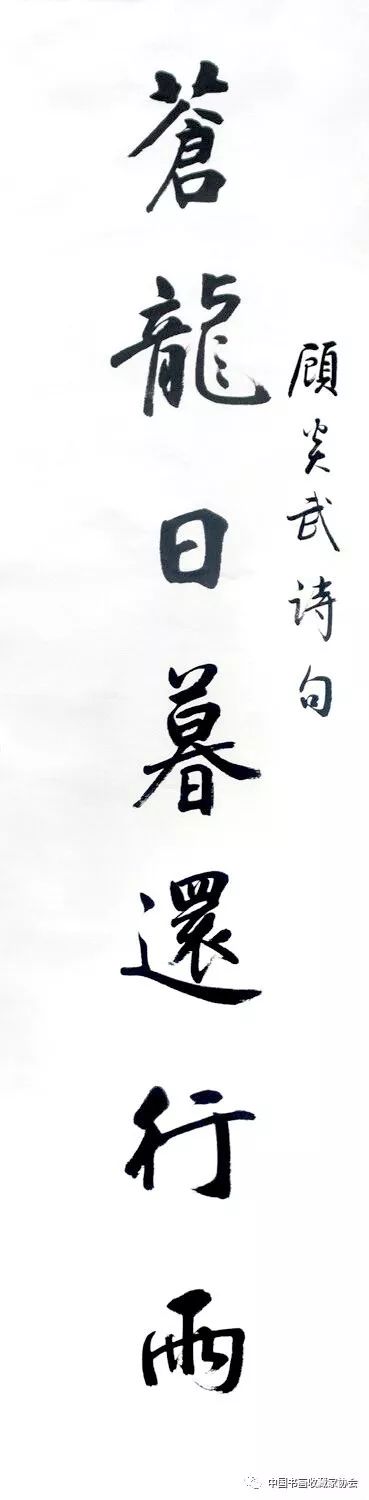 顾炎武诗句
蒼龍日暮還行雨
中国书画收藏家协会